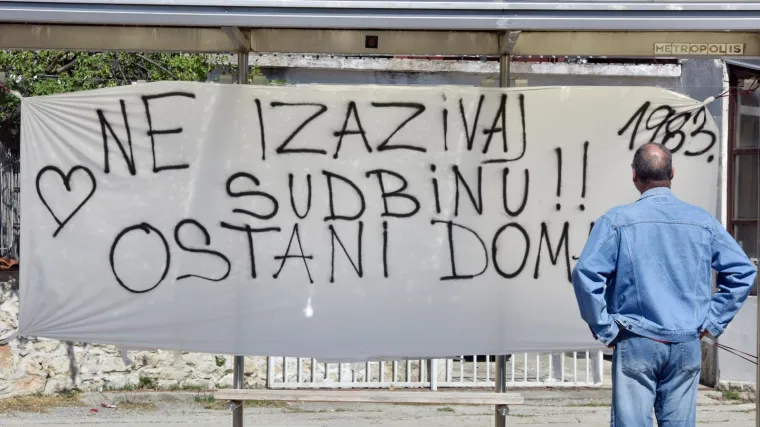 METROPOLIS
NE IZAZIVAJ 1983.
SUDBINU!!
OSTANI DOMA